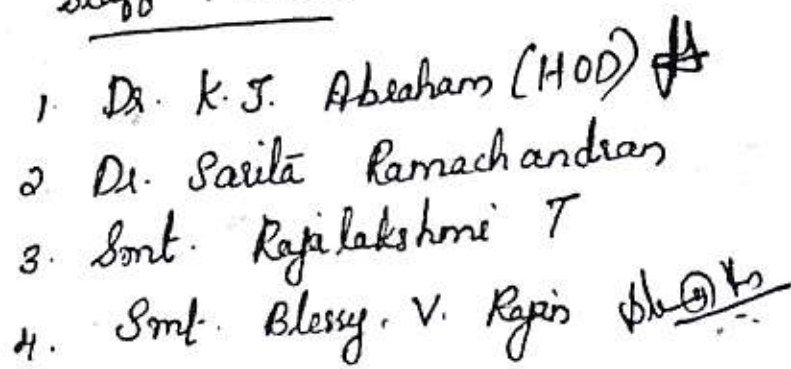 Staff
1. Dr. K. J. Abraham (HOD)
2 Dr. Saritā Ramachandran
3. Smt. Rajalakshmi T
4. Smt. Blessy. V. Rajan